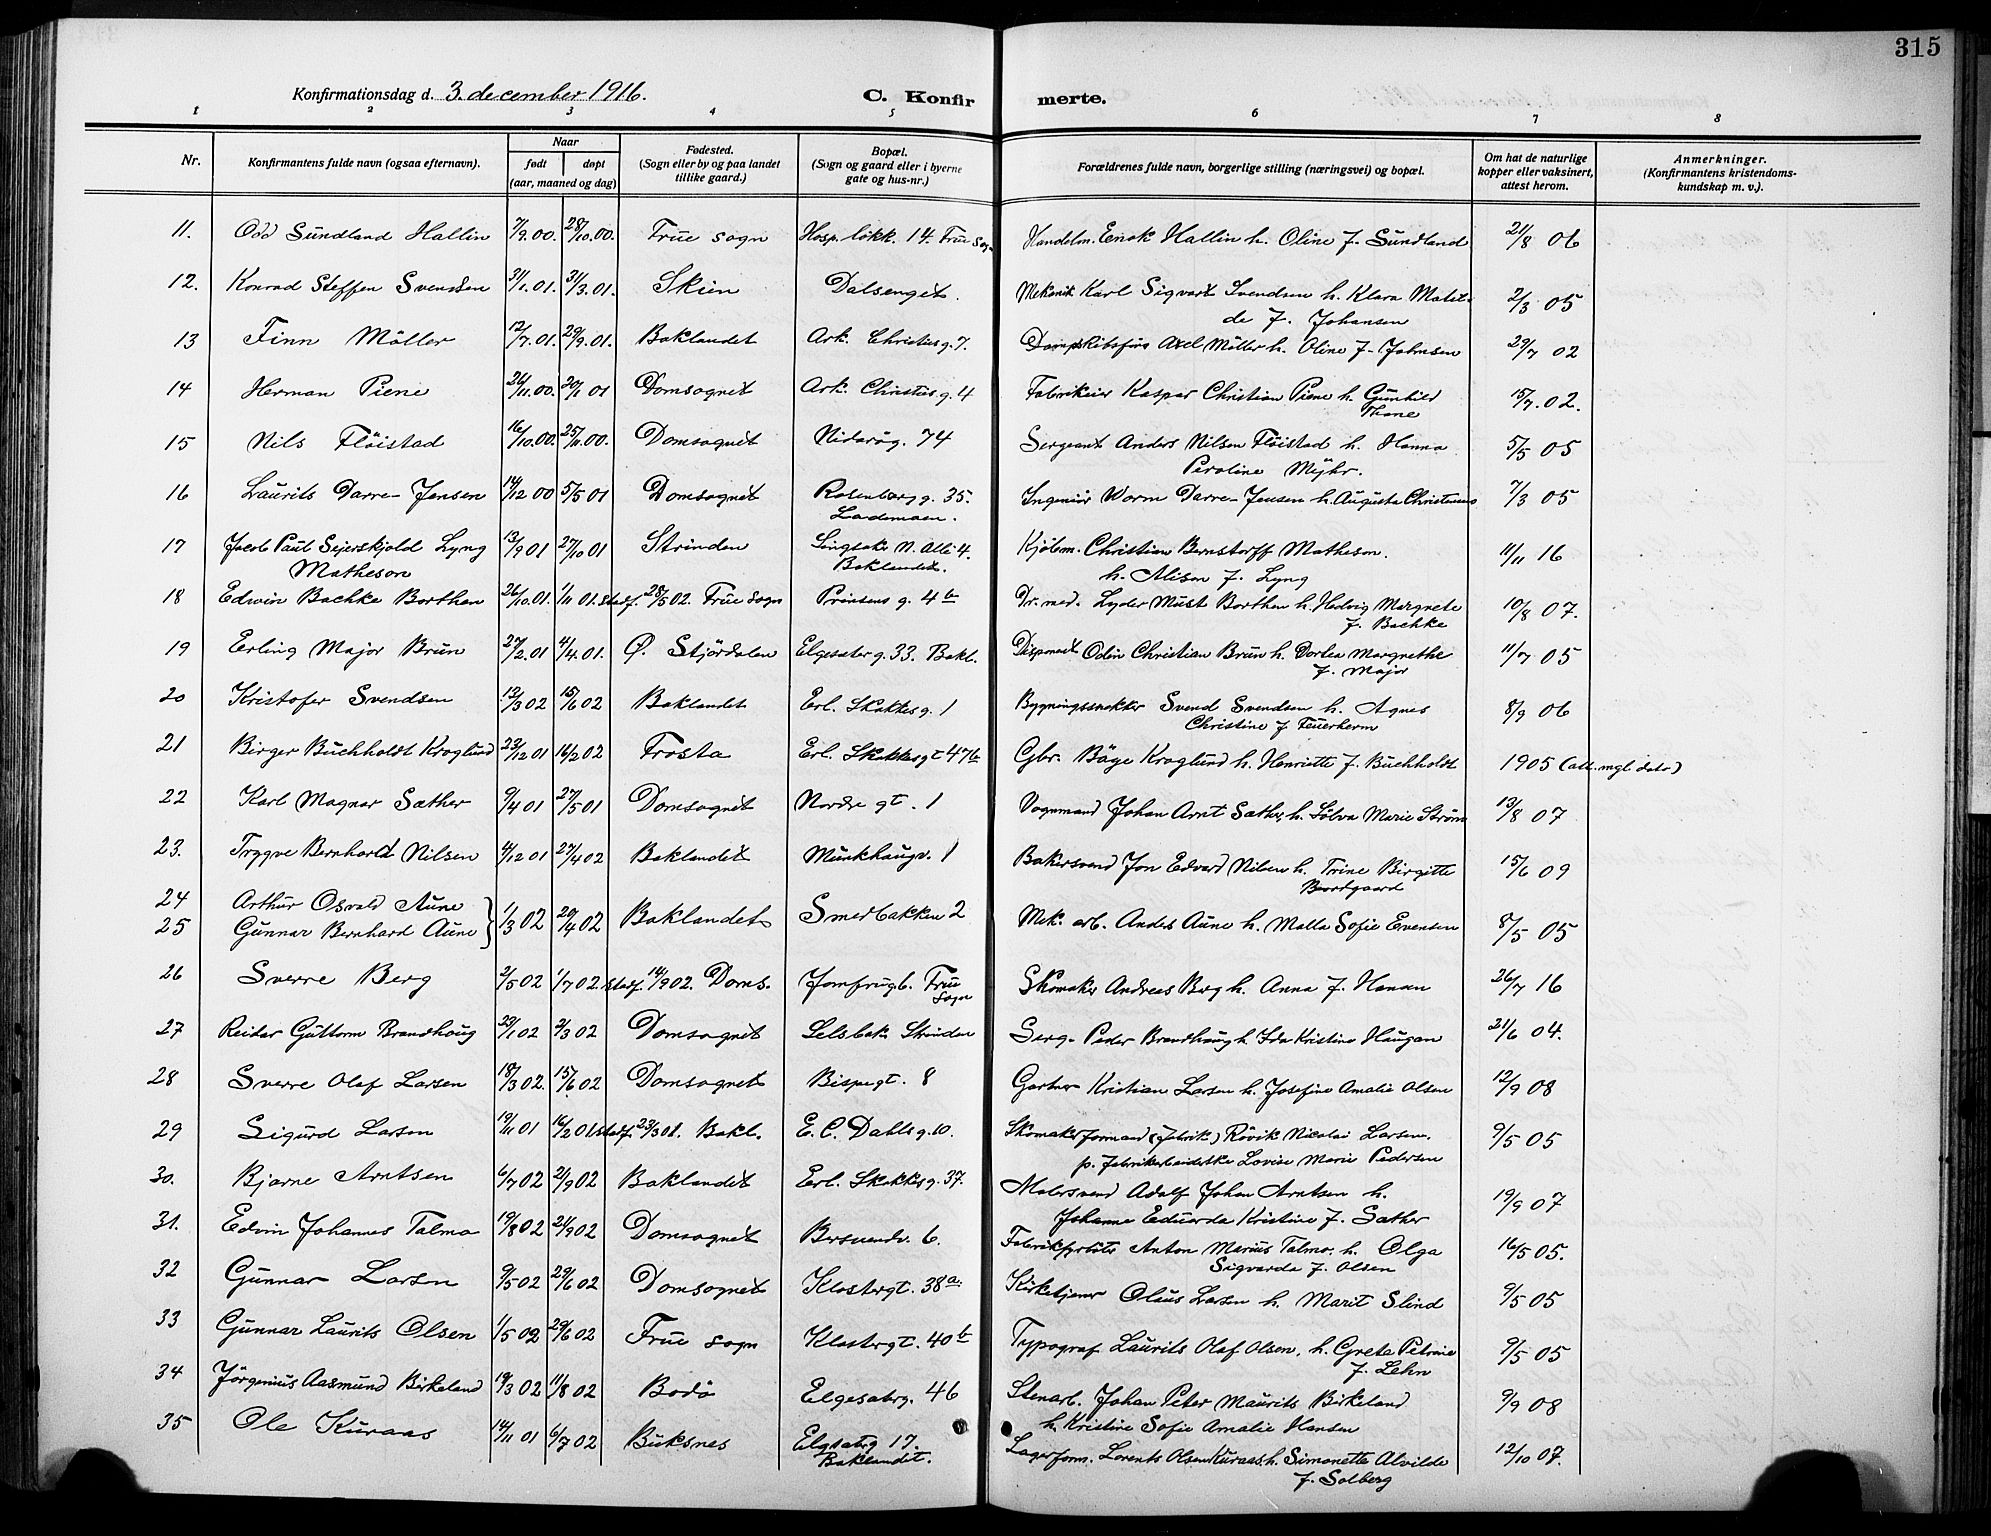 315
Konfirmationsdag d. 3. december 1916. C. Konfir merte.
1 2 3 4 5 6 7 8
Nr. Konfirmantens fulde navn (ogsaa efternavn). Naar født døpt (aar, maaned og dag) Fødested. (Sogn eller by og paa landet tillike gaard.) Bopæl. (Sogn og gaard eller i byerne gate og hus-nr.) Forældrenes fulde navn, borgerlige stilling (næringsvei) og bopæl. Om hat de naturlige kopper eller vaksinert, attest herom. Anmerkninger. (Konfirmantens kristendomskundskap m. v.).
11. Odd Sundland Hallin 7/9.00. 28/10.00. Frue sogn Hosp. løkk. 14. Frue sogn Handelm. Enok Hallin h. Oline f. Sundland 21/8 06
12. Konrad Steffen Svendsen 31/1.01. 31/3.01. Skien Dalsenget. Mekanik Karl Sigvart Svendsen h. Klara Matil-
de f. Johansen 2/3 05
13 Finn Möller 12/7.01. 29/9.01. Baklandet Ark. Christies g. 7. Dampskibsfüre Axel Möller h. Oline f. Johnsen 29/7 02
14 Herman Piene 26/11.00. 20/1 01 Domsognet Ark. Christies g. 4 Fabrikeier Kaspar Christian Piene h. Gunhild
Thane 15/7.02.
15 Nils Flöistad 16/10.00. 25/11.00. Domsognet Nidarög. 74 Sergeant Anders Nilsen Flöistad h. Hanna
Peroline Myhr. 5/5 05
16 Laurits Darre-Jensen 14/12 00 5/5 01 Domsognet Rosenborg g. 35. Ingeniör Worm Darre-Jensen h. Augusta Christensen 7/3 05
Lademoen.
17 Jacob Paul Sejerskjold Lyng 13/9 01 27/10 01 Strinden Singsaker N. Alle 4. Kjöbm. Christian Bernstorff Matheson. 11/11 16
Matheson Baklandet. h. Alisen f. Lyng
18 Edwin Bachke Borthen 26/10.01. 1/11 01. stadf. 28/5 02. Frue sogn Prinsens g. 4b Dr. med. Lyder Must Borthen h. Hedvig Margrete
f. Bachke 10/8 07.
19 Erling Major Brun 27/2.01 4/4.01. Ø. Stjördalen Elgesæter g. 33. Bakl. Disponent Odin Christian Brun h. Dorlea Margrethe
f. Major 11/7 05
20 Kristofer Svendsen 13/3 02 15/6 02 Baklandet Erl. Skakkes g. 1 Bygningssnekker Svend Svendsen h. Agnes
Christine f. Feuerherm 8/9 06
21 Birger Buchholdt Kroglund 23/12 01 16/2 02 Frosta Erl. Skakkes gt 47b Gbr. Böye Kroglund h. Henriette f. Buchholdt 1905 (att. mgl dato)
22 Karl Magnar Sæther 9/4 01 27/5 01 Domsognet Nordre gt. 1 Vognmand Johan Arnt Sæther, h. Sölva Marie Ström 13/8 07
23. Trygve Bernhard Nilsen 4/12 01 27/4 02 Baklandet Munkhaugv. 1 Bakersvend Jon Edvard Nilsen h. Trine Birgitte
Boordgaard 15/6 09
24 Arthur Osvald Aune
25 Gunnar Bernhard Aune 1/3 02 20/4 02 Baklandet Smedbakken 2 Mek. arb. Anders Aune h. Malla Sofie Evensen 8/5 05
26 Sverre Berg 2/5 02 1/7 02. stadf. 14/9 02. Doms. Jomfrugt. Frue Skomaker Andreas Berg h. Anna f. Hansen 26/7 16
Sogn
27 Reidar Guttorm Brandhoug 23/1 02 2/3 02 Domsognet Selsbak Strinden Serg. Peder Brandhoug h. Ida Kristine Haugan 21/6 04.
28 Sverre Olaf Larsen 18/3 02. 15/6 02 Domsognet Bispegt. 8 Gartner Kristian Larsen h. Josefine Amalie Olsen 12/9 08
29 Sigurd Larsen 19/11 01 16/2 01 stadf. 23/3 01. Bakl. E. C. Dahls g. 10. Skomakerformand (fabrik) Rövik Nicolai Larsen.
p. fabrikarbeiderske Lovise Marie Pedersen 9/5 05
30. Bjarne Arntsen 6/7 02 21/9 02 Baklandet Erl. Skakkes g. 37. Malersvend Adolf Johan Arntsen h.
Johanne Eduarda Kristine f. Sæther 19/9 07
31. Edvin Johannes Talmo 19/8 02 21/9 02 Domsognet Bersvendv. 6. Anton Marius Talmo, h. Olga
Sigvarda f. Olsen 16/5 05.
32 Gunnar Larsen 9/5 02 29/6 02 Domsognet Klostergt. 38a. Kirketjener Olaus Larsen h. Marit Slind 9/5 05
33 Gunnar Laurits Olsen 1/5 02 29/6 02 Frue sogn Klostergt. 40b Typograf Laurits Olaf Olsen, h. Grete Petrine
f. Lehn 9/5 05
34 Jörgenius Aasmund Birkeland 19/3 02 11/8 02 Bodö Elgesæterg. 46 Stenarb. Johan Peter Maurits Birkeland
h. Kristine Sofie Amalie Hansen 9/9 08
35 Ole Kuraas 14/11 01 6/7 02 Buksnes Elgesæterg 17. Lagerform. Lorents Olsen Kuraas h. Simonette Alvilde 12/10 07.
Baklandet. f. Solberg